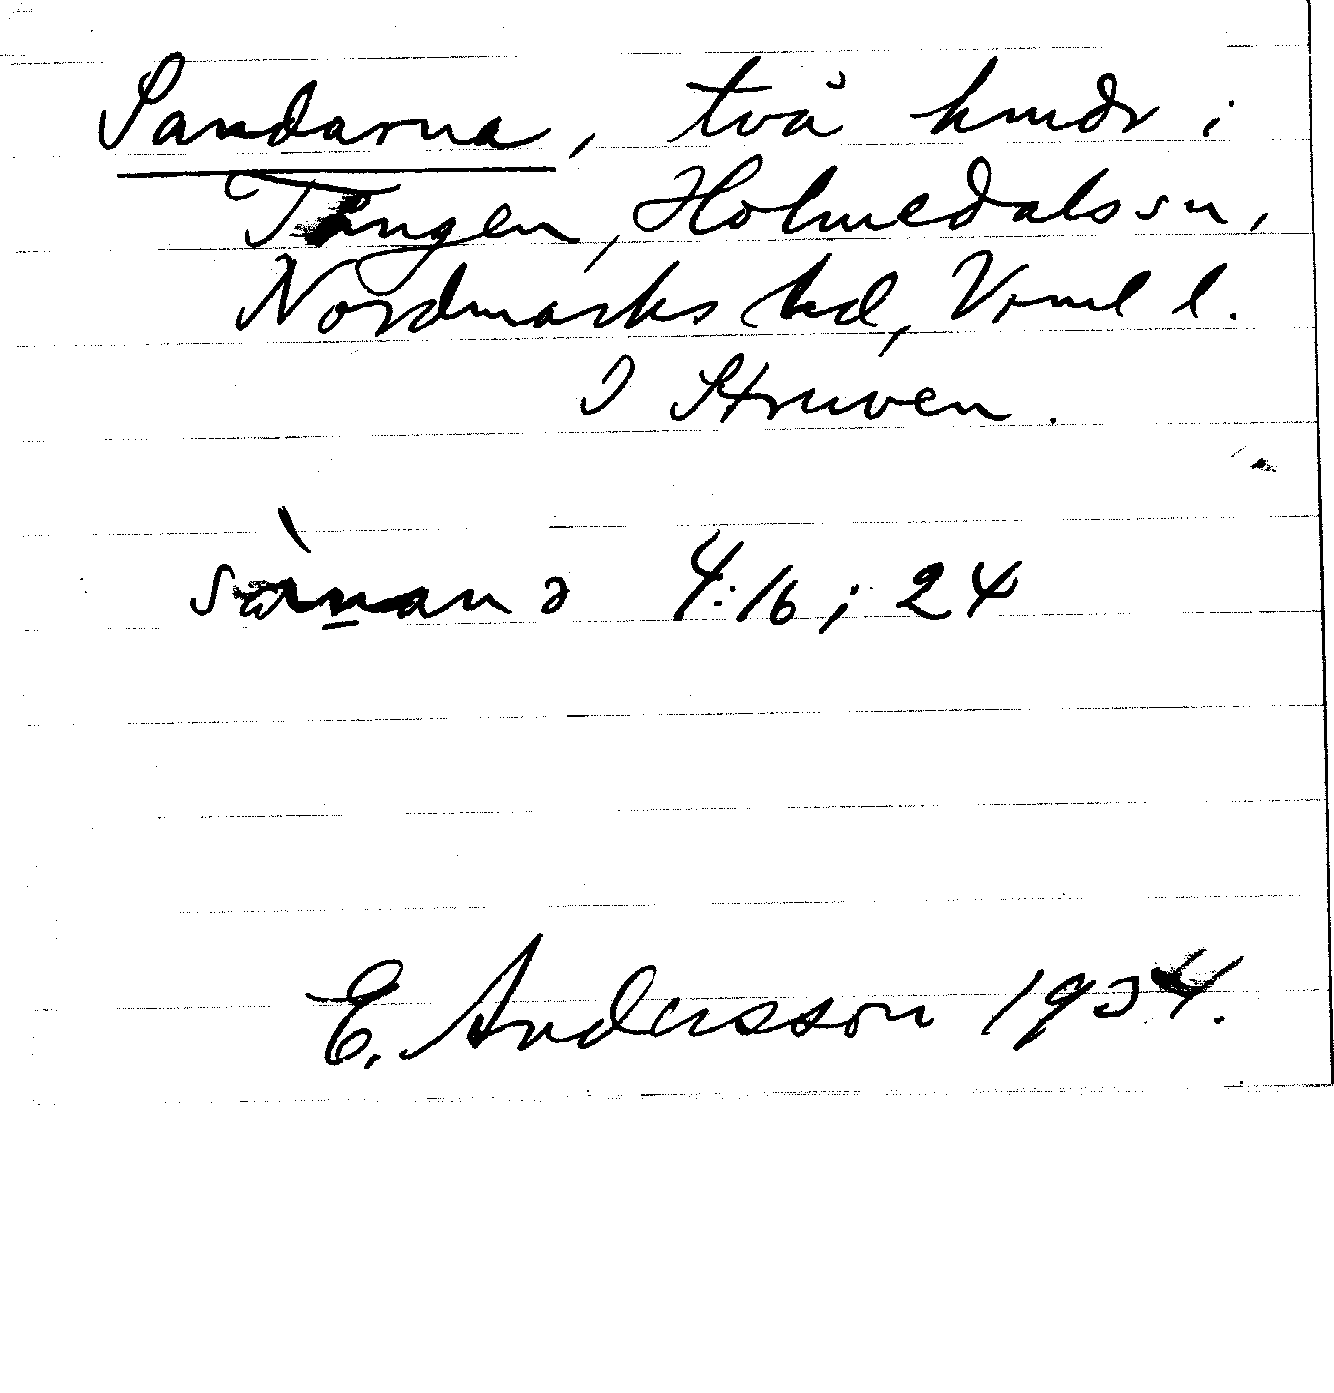 Sandarna, två hmdr i
Tången, Holmedals sn,
Nordmarks hd, Vrml l.
I Struven.
4:16; 24
E. Andersson 1934.